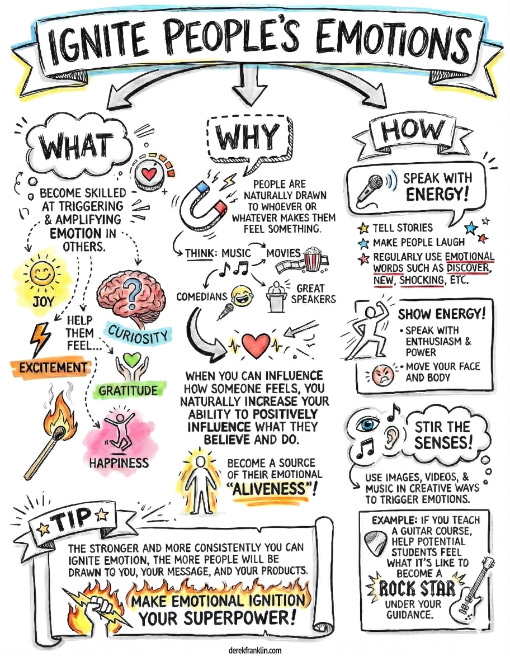 IGNITE PEOPLE'S EMOTIONS
WHAT
BECOME SKILLED
AT TRIGGERING
& AMPLIFYING
EMOTION IN
OTHERS.
JOY
CURIOSITY
HELP
THEM
FEEL...
EXCITEMENT
GRATITUDE
HAPPINESS
WHY
PEOPLE ARE
NATURALLY DRAWN
TO WHOEVER OR
WHATEVER MAKES THEM
FEEL SOMETHING.
THINK: MUSIC
MOVIES
COMEDIANS
GREAT
SPEAKERS
WHEN YOU CAN INFLUENCE
HOW SOMEONE FEELS, YOU
NATURALLY INCREASE YOUR
ABILITY TO POSITIVELY
INFLUENCE WHAT THEY
BELIEVE AND DO.
BECOME A SOURCE
OF THEIR EMOTIONAL
"ALIVENESS"!
HOW
SPEAK WITH
ENERGY!
TELL STORIES
MAKE PEOPLE LAUGH
REGULARLY USE EMOTIONAL
WORDS SUCH AS DISCOVER,
NEW, SHOCKING, ETC.
SHOW ENERGY!
• SPEAK WITH
ENTHUSIASM &
POWER
• MOVE YOUR FACE
AND BODY
STIR THE
SENSES!
USE IMAGES, VIDEOS, &
MUSIC IN CREATIVE WAYS
TO TRIGGER EMOTIONS.
EXAMPLE: IF YOU TEACH
A GUITAR COURSE,
HELP POTENTIAL
STUDENTS FEEL
WHAT IT'S LIKE TO
BECOME A
ROCK STAR
UNDER YOUR
GUIDANCE.
TIP
THE STRONGER AND MORE CONSISTENTLY YOU CAN
IGNITE EMOTION, THE MORE PEOPLE WILL BE
DRAWN TO YOU, YOUR MESSAGE, AND YOUR PRODUCTS.
MAKE EMOTIONAL IGNITION
YOUR SUPERPOWER!
derekfranklin.com